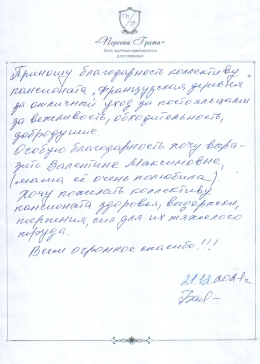 «Персона Грата»
Сеть частных пансионатов
для пожилых
Приношу благодарность коллективу
пансионата „Французская деревня“
за отличный уход за постояльцами
за вежливость, обходительность,
добродушие.
Особую благодарность хочу выра-
зить Валентине Максимовне
(мама её очень полюбила)
Хочу пожелать коллективу
пансионата здоровья, выдержки,
терпения, сил для их тяжелого
труда.
Всем огромное спасибо!!!
21.12.2021г.